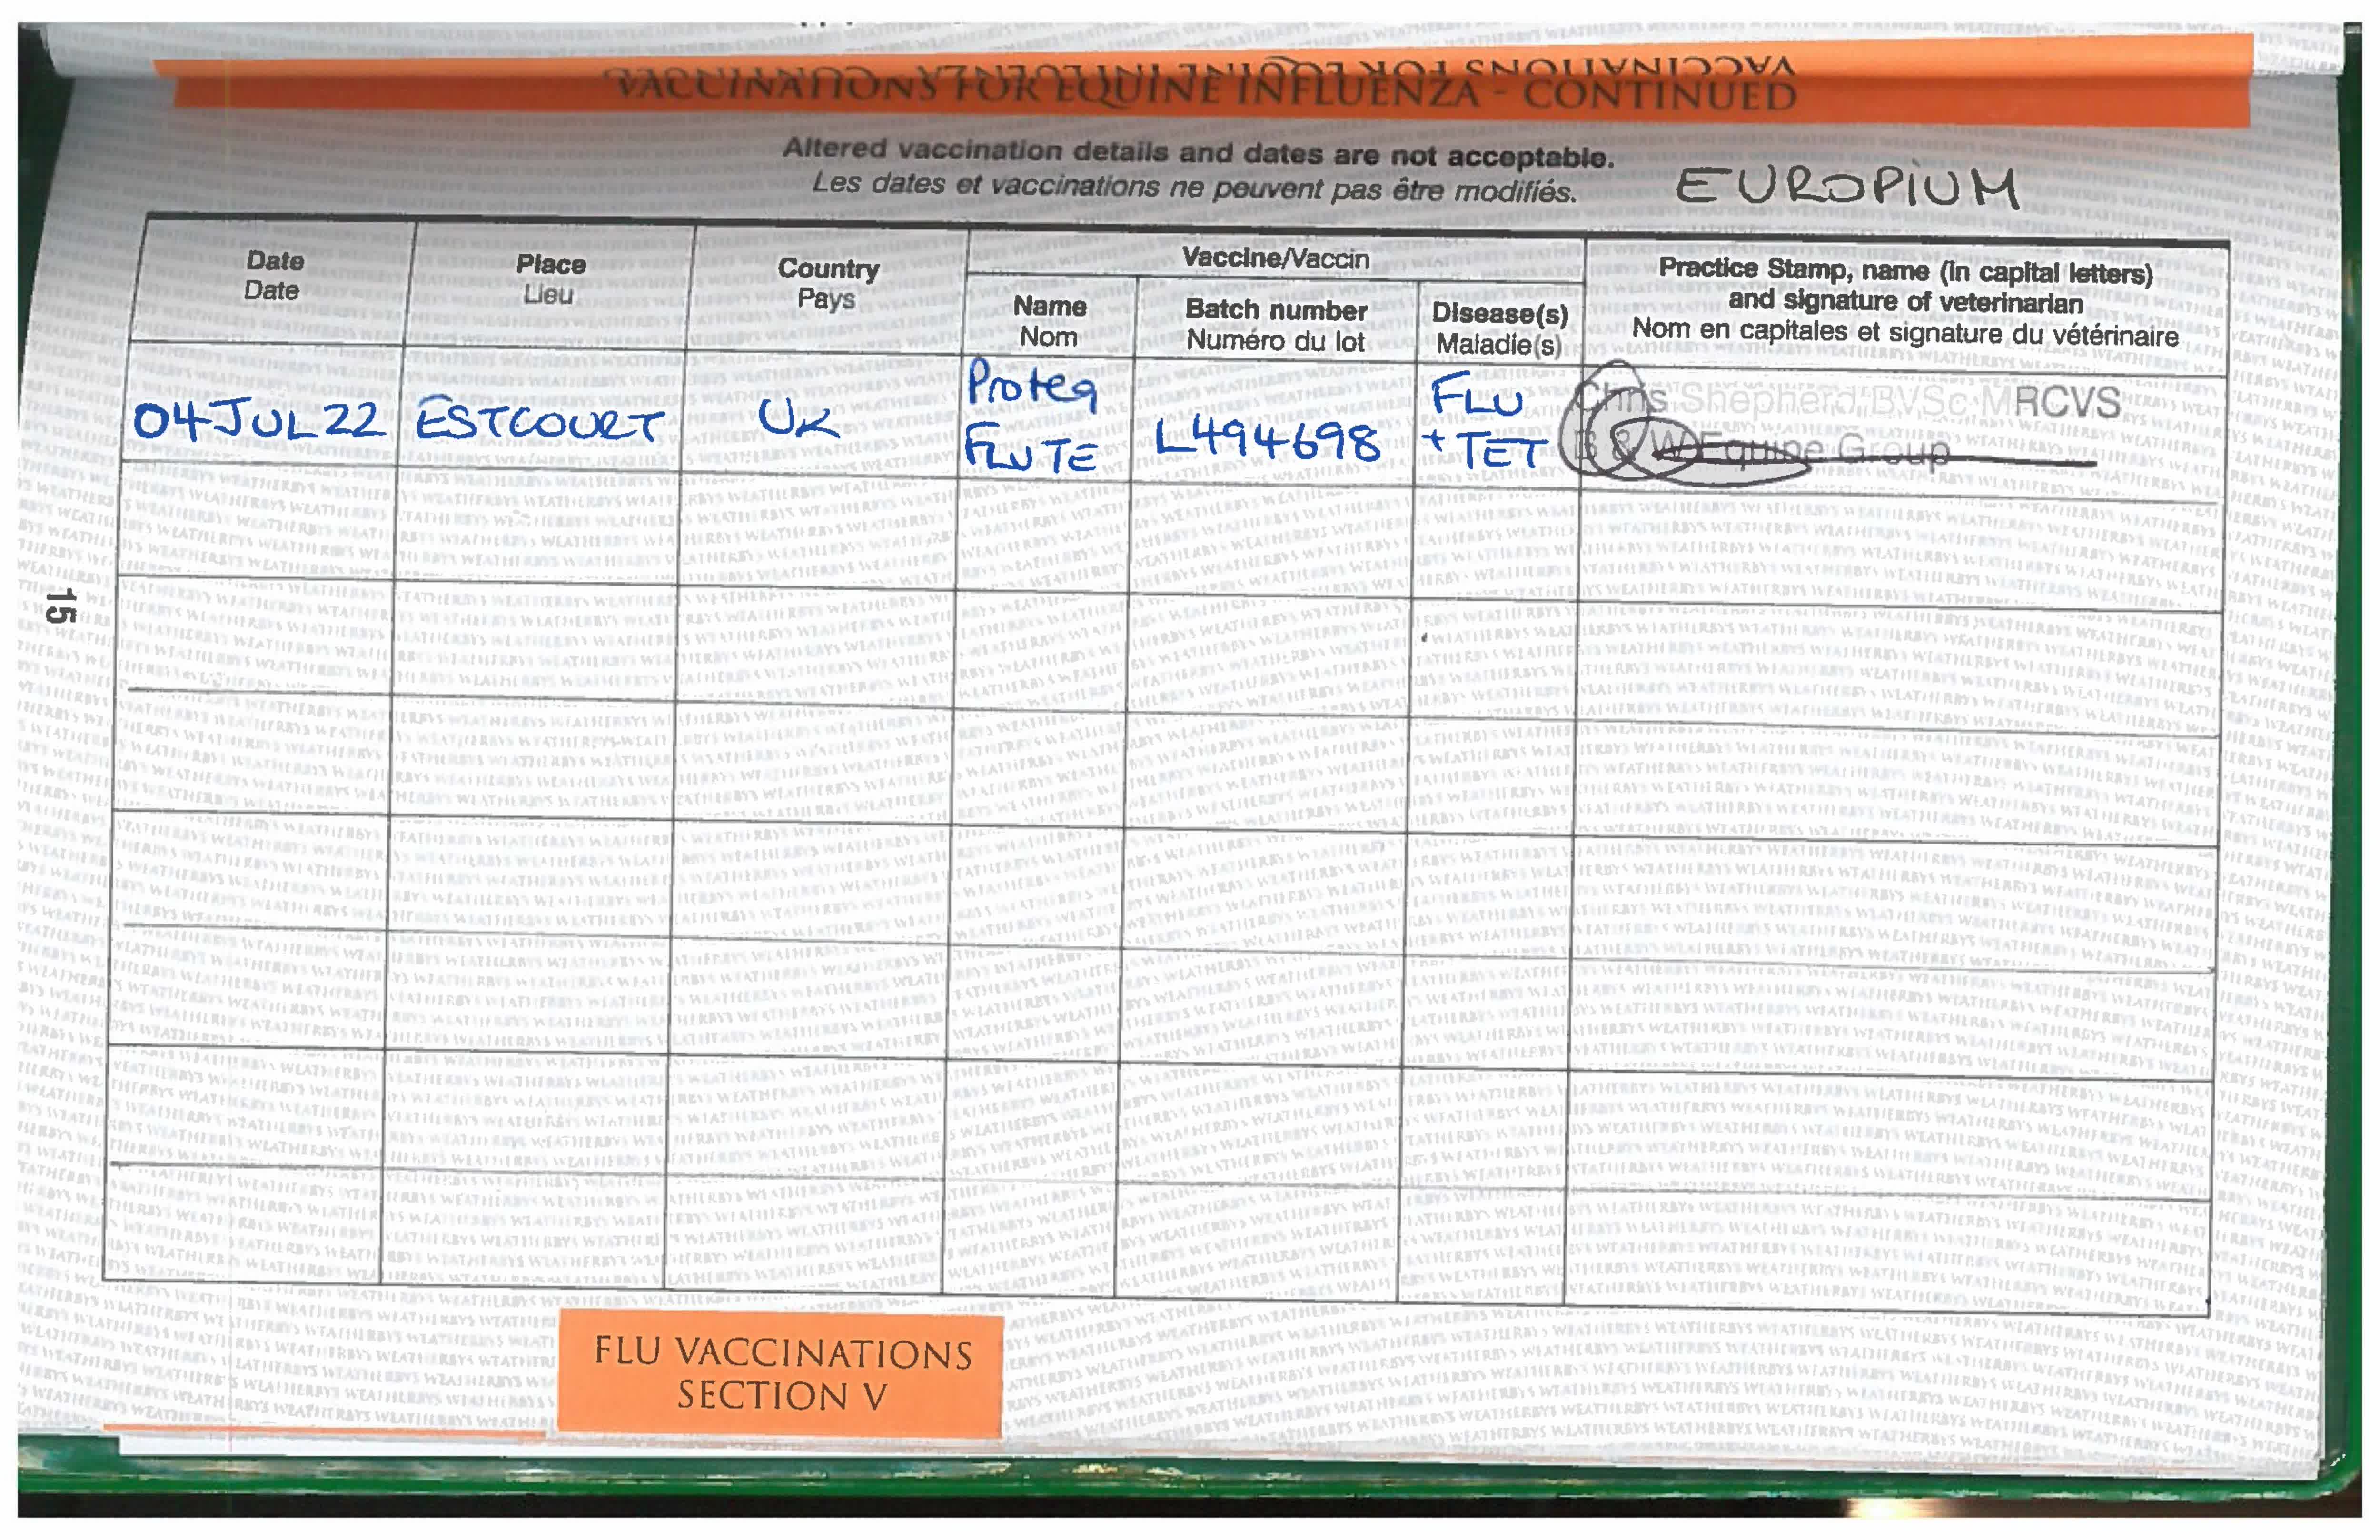 VACCINATIONS FOR EQUINE INFLUENZA - CONTINUED
Altered vaccination details and dates are not acceptable.
Les dates et vaccinations ne peuvent pas être modifiés.
EUROPIUM
Date
Date
Place
Lieu
Country
Pays
Vaccine/Vaccin
Name
Nom
Batch number
Numéro du lot
Disease(s)
Maladie(s)
Practice Stamp, name (in capital letters)
and signature of veterinarian
Nom en capitales et signature du vétérinaire
04 JUL 22
ESTCOURT
UK
Proteq
FLU TE
L494698
FLU
+ TET
Chris Shepherd BVSc MRCVS
B & W Equine Group
15
FLU VACCINATIONS
SECTION V